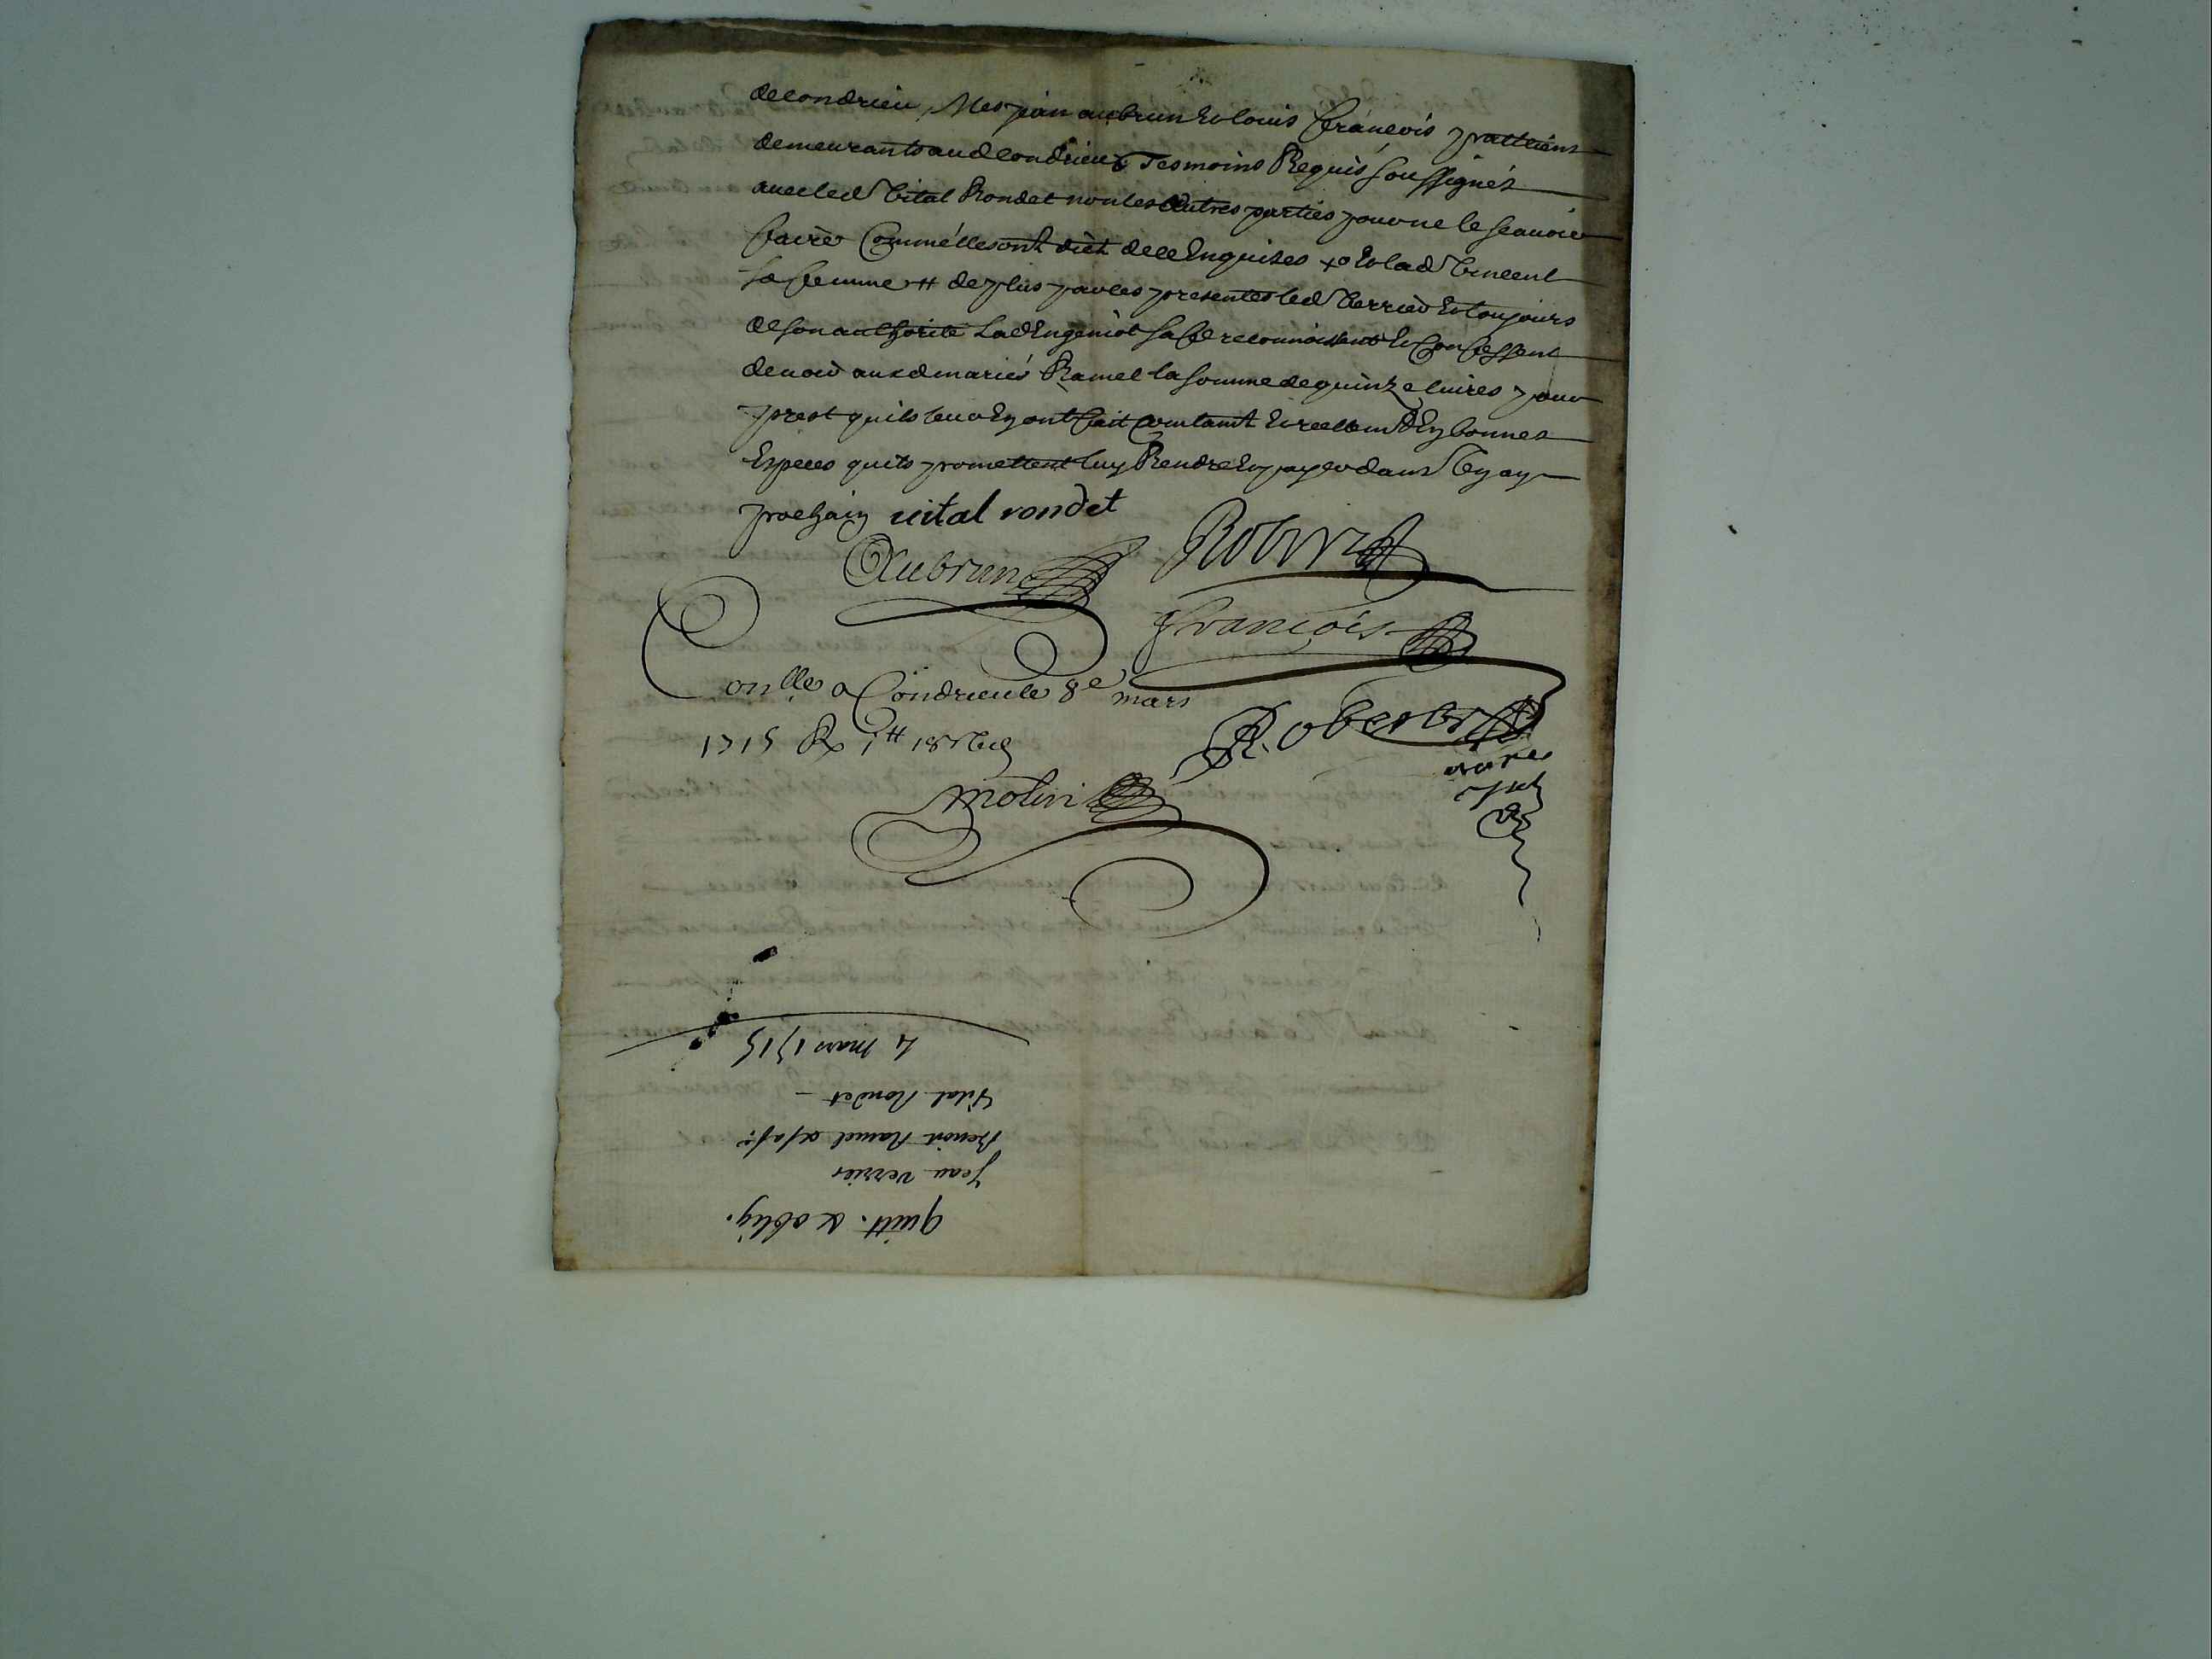 de condrieu, Mes jean aubrun Et louis francois pratticiens
demeurants aud condrieu Tesmoins Requis soussignés
avec led Vital Rondet non les autres parties pour ne le scavoir
faire Comme elles ont diet de ce Enquises xo Et lad Vincent
sa femme # de plus par les presentes led Verrier Et toujours
de son authorité Lad Engeniot sa fe reconnoissent Et Confessent
devoir auxd mariés Ramel la somme de quinze livres pour
prest quils leur En ont fait Comtamt Et reellemt En bonnes
Especes quils promettent luy Rendre Et payer dans Un an
prochain vital rondet
Aubrun Robin
francois
Conlle a Condrieu le 8e mars
1715 Rx 1# 18s
Robert
no.re
Molin
4 mars 1715
Vital Rondet –
Benoit Ramel & sa fe
Jean Verrier
quitt. & oblig.